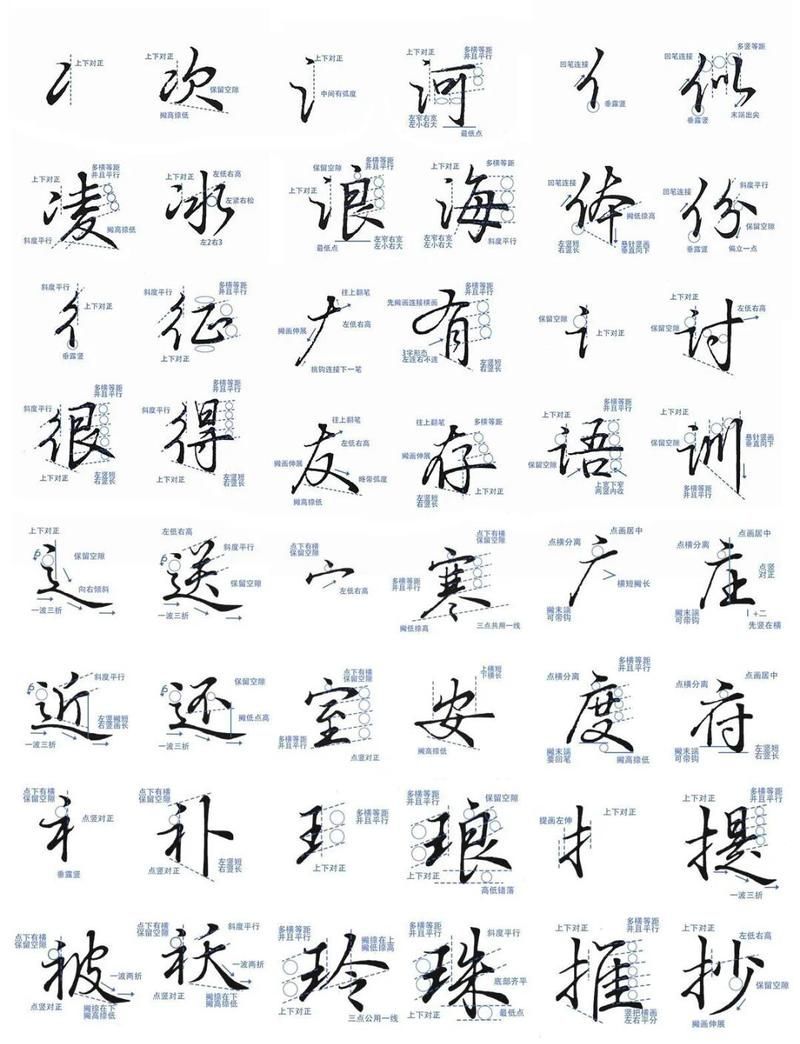 冫
上下对正
次
上下对正
保留空隙
撇高捺低
氵
上下对正
中间有弧度
河
上下对正
多横等距
并且平行
左窄右宽
左小右大
最低点
亻
回笔连接
垂露竖
似
多竖等距
回笔连接
垂露竖
末端出尖
凌
上下对正
多横等距
并且平行
斜度平行
撇高捺低
冰
上下对正
左低右高
左紧右松
左2右3
浪
保留空隙
上下对正
多横等距
并且平行
最低点
左窄右宽
左小右大
海
多横等距
上下对正
斜度平行
体
回笔连接
撇低捺高
左竖短
右竖长
悬针竖画
垂直向下
份
回笔连接
斜度平行
保留空隙
垂露竖
偏立一点
彳
斜度平行
上下对正
垂露竖
征
斜度平行
多横等距
并且平行
上下对正
往上翻笔
左低右高
撇画伸展
挑钩连接下一笔
有
先撇画连接横画
多横等距
并且平行
3字形态
左连右不连
左竖短
右竖长
讠
保留空隙
上下对正
讨
上下对正
左低右高
保留空隙
很
斜度平行
多横等距
并且平行
上下对正
左竖短
右竖长
得
斜度平行
多横等距
并且平行
上下对正
左竖短
右竖长
友
往上翻笔
左低右高
撇画伸展
略带弧度
撇高捺低
存
往上翻笔
多横等距
撇画伸展
上下对正
左竖短
右竖长
语
上下对正
多横等距
并且平行
保留空隙
上宽下窄
两竖内收
训
上下对正
保留空隙
悬针竖画
垂直向下
多横等距
并且平行
辶
上下对正
保留空隙
向右倾斜
一波三折
送
左低右高
斜度平行
保留空隙
一波三折
宀
点下有横
保留空隙
左低右高
寒
点下有横
保留空隙
多横等距
并且平行
撇低捺高
三点共用一线
广
点画居中
点横分离
横短撇长
撇末端
可带钩
庄
点画居中
点横分离
点竖
对正
撇末端
可带钩
1+二
先竖在横
近
斜度平行
左竖撇短
右竖画长
一波三折
还
保留空隙
撇低点高
一波三折
室
点下有横
保留空隙
多横等距
并且平行
点竖对正
安
上横短
下横长
撇高捺低
度
多横等距
并且平行
点横分离
撇末端
要回笔
撇高捺低
府
点画居中
点横分离
撇末端
可带钩
左竖短
右竖长
衤
点下有横
保留空隙
点竖对正
垂露竖
补
点下有横
保留空隙
点竖对正
左竖短
右竖长
王
多横等距
并且平行
上下对正
琅
多横等距
并且平行
保留空隙
上下对正
高低错落
扌
提画左伸
上下对正
提
上下对正
多横等距
并且平行
一波三折
被
点下有横
保留空隙
一波两折
点竖对正
撇捺在下
撇高捺低
袄
点下有横
保留空隙
斜度平行
一波两折
点竖对正
撇捺在下
撇高捺低
玲
多横等距
并且平行
撇捺在上
撇低捺高
上下对正
三点公用一线
珠
多横等距
并且平行
斜度平行
底部齐平
上下对正
最低点
推
上下对正
多横等距
并且平行
竖把横画
左右平分
抄
上下对正
左低右高
保留空隙
撇画伸展